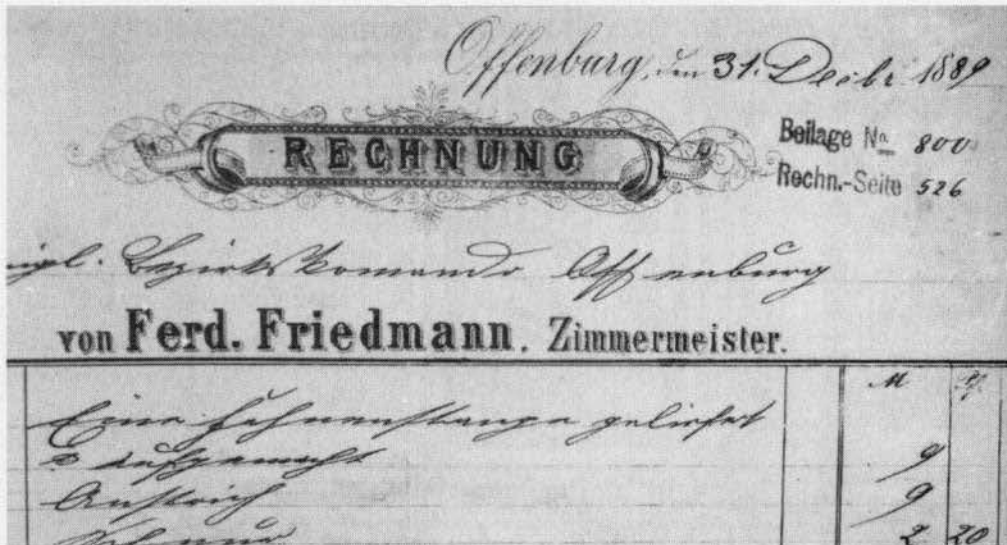 Offenburg, den 31. Decbr. 1889
RECHNUNG
Beilage No 800
Rechn.-Seite 526
Bezirks Komando Offenburg
von Ferd. Friedmann. Zimmermeister.
M Pf
Eine Fahnenstange geliefert
& aufgemacht 9
Anstrich 9
Schnur 2 20